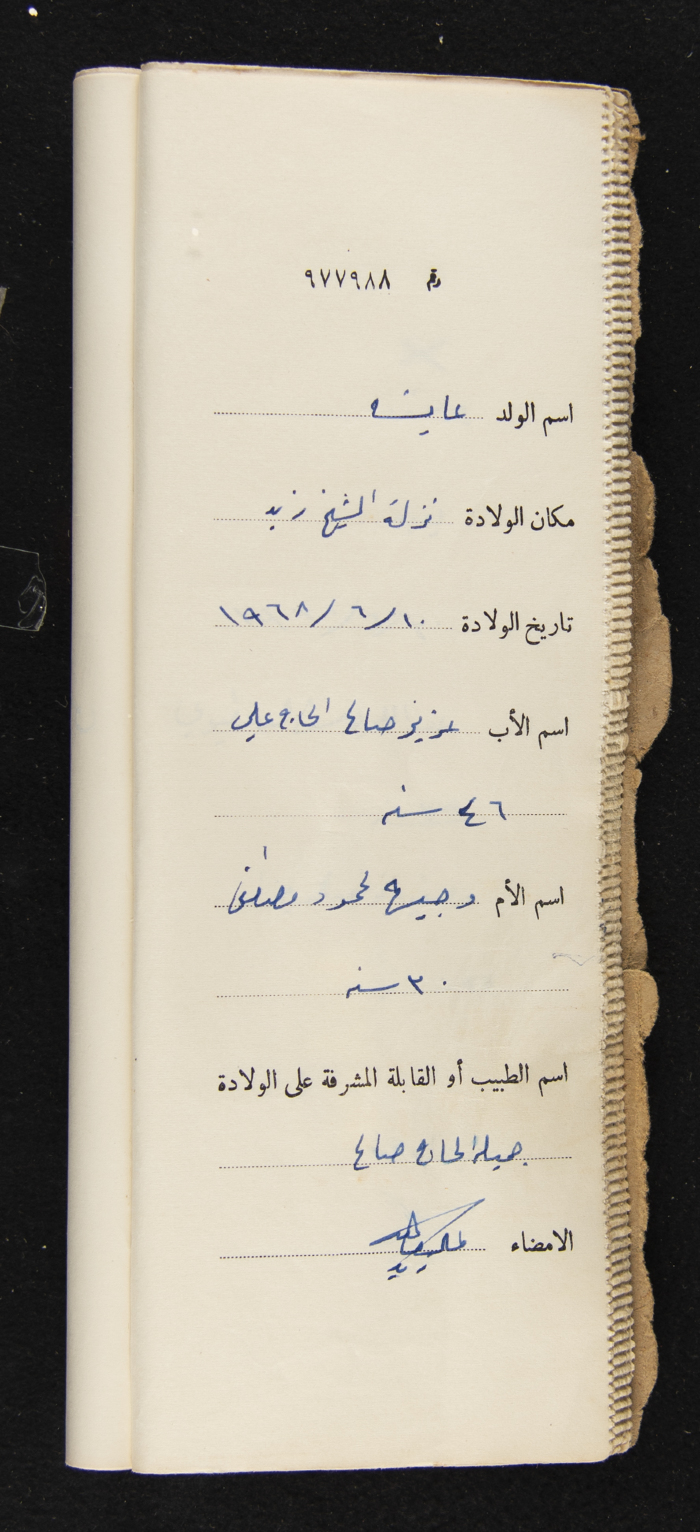 رقم ٩٧٧٩٨٨
اسم الولد عايشه
مكان الولادة نزلة الشيخ زيد
تاريخ الولادة ١٠/٦/١٩٦٨
اسم الأب عزيز صالح الحاج علي
٤٦ سنه
اسم الأم وجيهه محمود مصطفى
٣٠ سنه
اسم الطبيب أو القابلة المشرفة على الولادة
جميله الحاج صالح
الامضاء